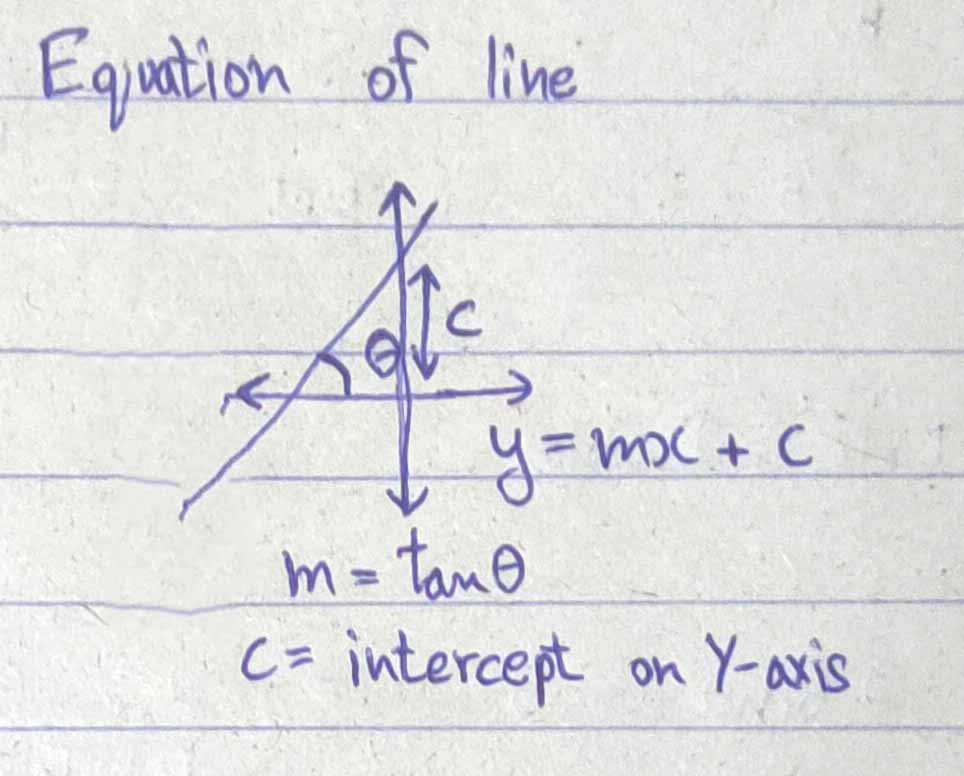 Equation of line
C
θ
y = mx + c
m = tanθ
C = intercept on Y-axis